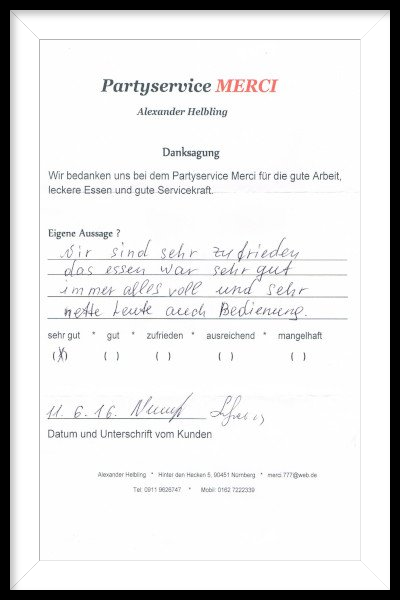 Partyservice MERCI
Alexander Helbling
Danksagung
Wir bedanken uns bei dem Partyservice Merci für die gute Arbeit,
leckere Essen und gute Servicekraft.
Eigene Aussage ?
Wir sind sehr zufrieden
das essen war sehr gut
immer alles voll und sehr
nette Leute auch Bedienung.
sehr gut * gut * zufrieden * ausreichend * mangelhaft
(X) ( ) ( ) ( ) ( )
11. 6. 16.
Datum und Unterschrift vom Kunden
Alexander Helbling * Hinter den Hecken 5, 90451 Nürnberg * merci.777@web.de
Tel: 0911 9626747 * Mobil: 0162 7222339